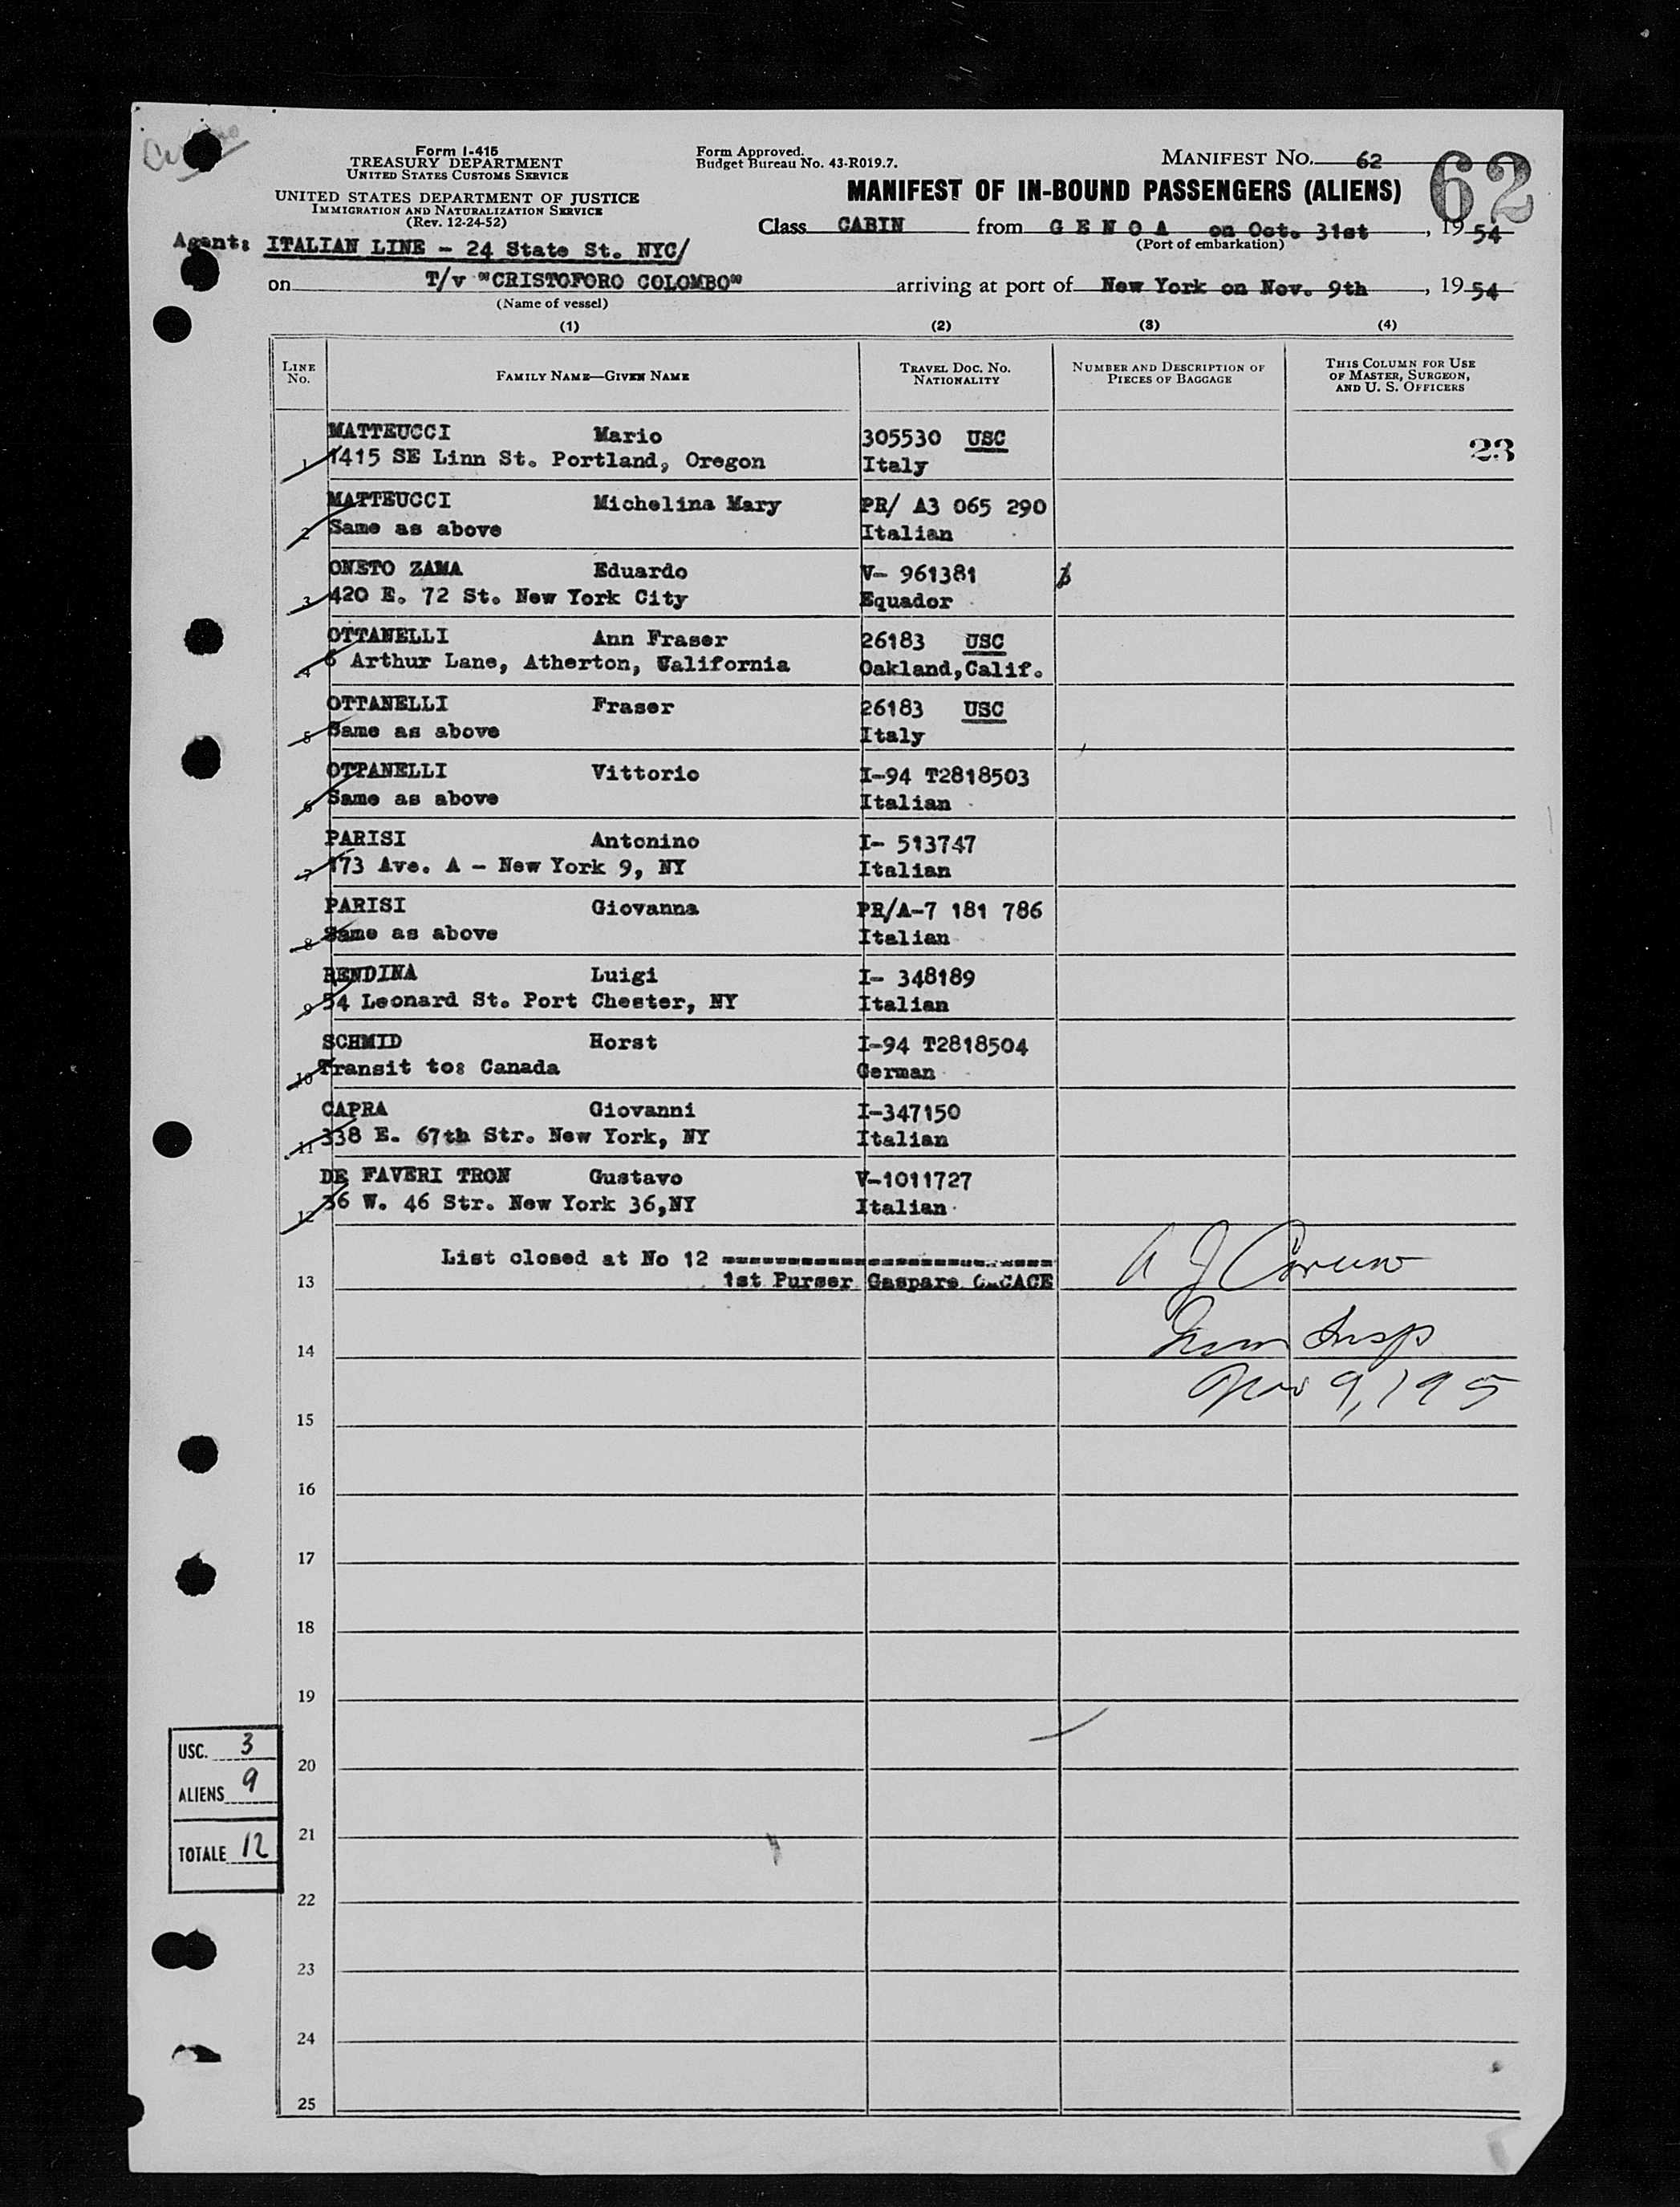 Form I-415
TREASURY DEPARTMENT
UNITED STATES CUSTOMS SERVICE
UNITED STATES DEPARTMENT OF JUSTICE
IMMIGRATION AND NATURALIZATION SERVICE
(Rev. 12-24-52)
Form Approved.
Budget Bureau No. 43-R019.7.
MANIFEST NO. 62
62
MANIFEST OF IN-BOUND PASSENGERS (ALIENS)
Class CABIN from GENOA on Oct. 31st, 1954
(Port of embarkation)
Agent: ITALIAN LINE - 24 State St. NYC/
on T/v "CRISTOFORO COLOMBO" arriving at port of New York on Nov. 9th, 1954
(Name of vessel)
(1) (2) (3) (4)
LINE No. FAMILY NAME—GIVEN NAME TRAVEL DOC. NO. NATIONALITY NUMBER AND DESCRIPTION OF PIECES OF BAGGAGE THIS COLUMN FOR USE OF MASTER, SURGEON, AND U. S. OFFICERS
MATTEUCCI Mario 305530 USC 23
1 1415 SE Linn St. Portland, Oregon Italy
MATTEUCCI Michelina Mary PR/ A3 065 290
2 Same as above Italian
ONETO ZAMA Eduardo V- 961381
3 420 E. 72 St. New York City Equador
OTTANELLI Ann Fraser 26183 USC
4 6 Arthur Lane, Atherton, California Oakland,Calif.
OTTANELLI Fraser 26183 USC
5 Same as above Italy
OTTANELLI Vittorio I-94 T2818503
6 Same as above Italian
PARISI Antonino I- 513747
7 173 Ave. A - New York 9, NY Italian
PARISI Giovanna PR/A-7 181 786
8 Same as above Italian
RENDINA Luigi I- 348189
9 54 Leonard St. Port Chester, NY Italian
SCHMID Horst I-94 T2818504
10 Transit to: Canada German
CAPRA Giovanni I-347150
11 338 E. 67th Str. New York, NY Italian
DE FAVERI TRON Gustavo V-1011727
12 36 W. 46 Str. New York 36,NY Italian
List closed at No 12
13 1st Purser Gaspare
A J Caruso
14 Imm Insp
Nov 9, 195
15
16
17
18
19
USC. 3
20
ALIENS 9
21
TOTALE 12
22
23
24
25